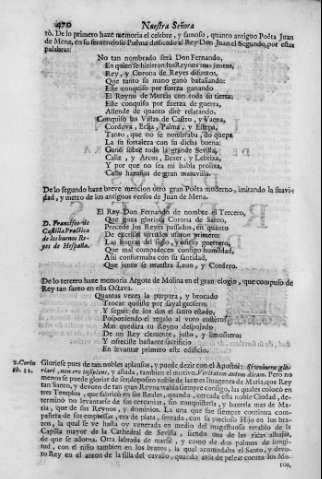 470 Nuestra Señora
to. De lo primero haze memoria el celebre, y famoso, quanto antiguo Poëta Juan
de Mena, en su Poëma dedicado al Rey Don Juan el Segundo, por estas
palabras:
No tan nombrado será Don Fernando,
En quien se hizieron los Reynos mas juntos,
Rey, y Corona de Reyes difuntos,
Que tanto su mano ganó batallando:
Este conquiso por fuerza ganando
El Reyno de Murcia con toda su tierra;
Este conquiso por fuerza de guerra,
Allende de quanto diré relatando.
Conquiso las Villas de Castro, y Vaena,
Cordova, Ecija, Palma, y Estepa,
Tanto, que no se nombraba, do quepa
La su fortaleza con su dicha buena:
Ganó sobre toda la grande Sevilla,
y Arcos, Bexer, y Lebrixa,
Y por que no sea mi habla prolixa,
Callo hazañas de gran maravilla.
De lo segundo haze breve mencion otro gran Poëta moderno, imitando la suavi-
dad, y metro de los antiguos versos de Juan de Mena.
D. Francisco de
Castilla Practica
de los buenos Re-
yes de España.
El Rey Don Fernando de nombre el Tercero,
Que gana gloriosa Corona de Santo,
Precede los Reyes passados, en quanto
De excelsas virtudes
Las del siglo,
Que mal compadecen consigo humildad,
Assi conformaba con su santidad,
Que junto se muestra Leon, y Cordero.
De lo tercero haze memoria Argote de Molina en el gran elogio, que compuso de
Rey tan santo en esta Octava.
Quantas vezes la purpura, y brocado
Trocar quisiste por sayal grossero,
Y seguir de los dos el santo estado,
Posponiendo el regalo al voto
Mas quedira tu Reyno despojado
De un Rey clemente, justo, y limosnero,
Y ofreciste bastante sacrificio
En levantar primero este edificio.
2. Corin.
lib. 11.
Gloriese pues de tan nobles aplausos, y puede dezir con el Apostol: Si voluero glo-
riari, non ero insipiens, y añada, tambien el motivo. Veritatem autem dicam. Pero no
menos se puede gloriar de ser deposito noble de las tres Imagenes de Maria, que Rey
tan Santo, y devoto de tan gran Reyna
tres Templos, que fabricò en sus Reales, quando, cercada esta noble Ciudad, de-
terminò no como conquistador, sino arrendarla, y hazerla mas de Ma-
ria, que de sus Reynos, y dominios. La una que fue siempre continua com-
pañera de sus empressas, era de plata, sentada, con su precioso Hijo en los bra-
zos, en la qual hoy es venerada en medio del magestuoso retablo de la
Capilla mayor de la Cathedral de Sevilla, siendo una de las ricas alhajas,
de que se adorna. Otra labrada de marfil, y como de dos palmos de longi-
tud, con el niño tambien en los brazos, la qual acomodaba el Santo, y devo-
to Rey en el arzon de la silla del cavallo, quando avia de pelear contra los Mo-
ros,